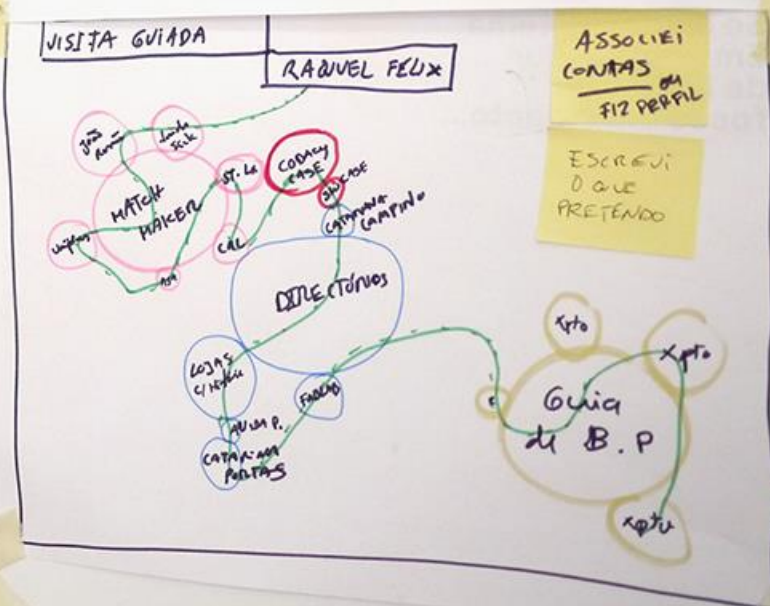 VISITA GUIADA
RAQUEL FÉLIX
ASSOCIEI
CONTAS
ou
FIZ PERFIL
ESCREVi
O QUE
PRETENDO
MATCH
MAKER
ST. La
CODACY
CASE
CAL
CATARINA
CAMPINO
DIRECTÓRIOS
LOJAS
FABLAB
CATARINA
PORTAS
Xpto
Xpto
Guia
de B.P
Xpto